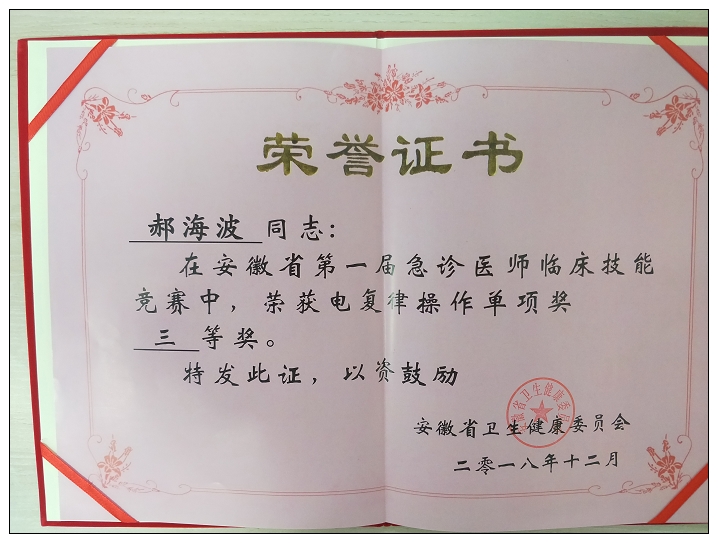 荣誉证书
郝海波 同志：
在安徽省第一届急诊医师临床技能
竞赛中，荣获电复律操作单项奖
三 等奖。
特发此证，以资鼓励
安徽省卫生健康委员会
安徽省卫生健康委员会
二零一八年十二月